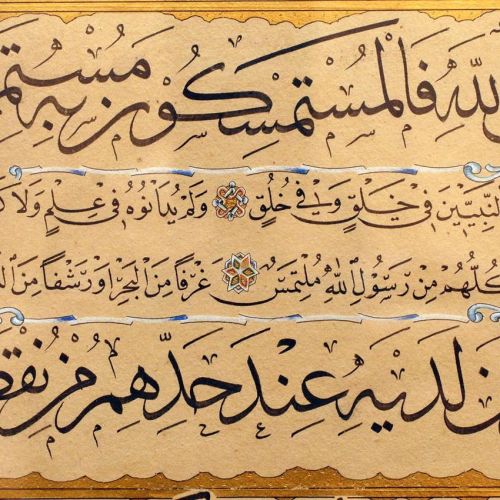 اللهِ فَالْمُسْتَمْسِكُونَ بِهِ مُسْتَمْـ
النَّبِيِّينَ فِي خَلْقٍ وَفِي خُلُقٍ وَلَمْ يُدَانُوهُ فِي عِلْمٍ وَلَا كَـ
كُلُّهُمْ مِنْ رَسُولِ اللهِ مُلْتَمِسٌ غَرْفًا مِنَ الْبَحْرِ أَوْ رَشْفًا مِنَ الـ
ـنَ لَدَيْهِ عِنْدَ حَدِّهِمِ مِنْ نُقْطَـ